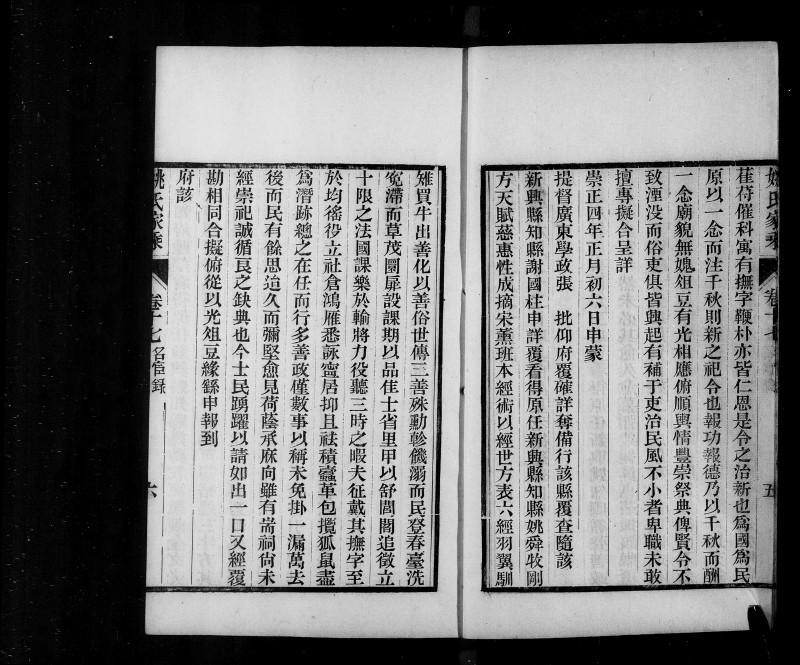 姚氏家乘 卷十七 五
萑苻催科寓有撫字鞭朴亦皆仁恩是令之治新也爲國爲民
原以一念而注千秋則新之祀令也報功報德乃以千秋而酬
一念廟貌無媿俎豆有光相應俯順輿情豐崇祭典俾賢令不
致湮没而俗吏俱皆興起有補于吏治民風不小者卑職未敢
擅專擬合呈詳
崇正四年正月初六日申蒙
提督廣東學政張　批仰府覆確詳奪備行該縣覆查隨該
新興縣知縣謝國柱申詳覆看得原任新興縣知縣姚舜牧剛
方天賦慈惠性成摛宋薰班本經術以經世方表六經羽翼馴
雉買牛出善化以善俗世傳三善殊勳軫饑溺而民登春臺洗
寃滯而草茂圜扉設課期以品隹士省里甲以舒閭閻追徵立
十限之法國課樂於輸將力役聽三時之暇夫征戴其撫字至
於均徭役立社倉鴻雁悉詠寧居抑且祛積蠹革包攬狐鼠盡
爲潛跡總之在任而行多善政僅數事以稱未免掛一漏萬去
後而民有餘思迨久而彌堅愈見荷蔭承庥向雖有耑祠尙未
經崇祀誠循良之缺典也今士民踴躍以請如出一口又經覆
勘相同合擬俯從以光俎豆緣繇申報到
府該
姚氏家乘 卷十七 名宦錄 六